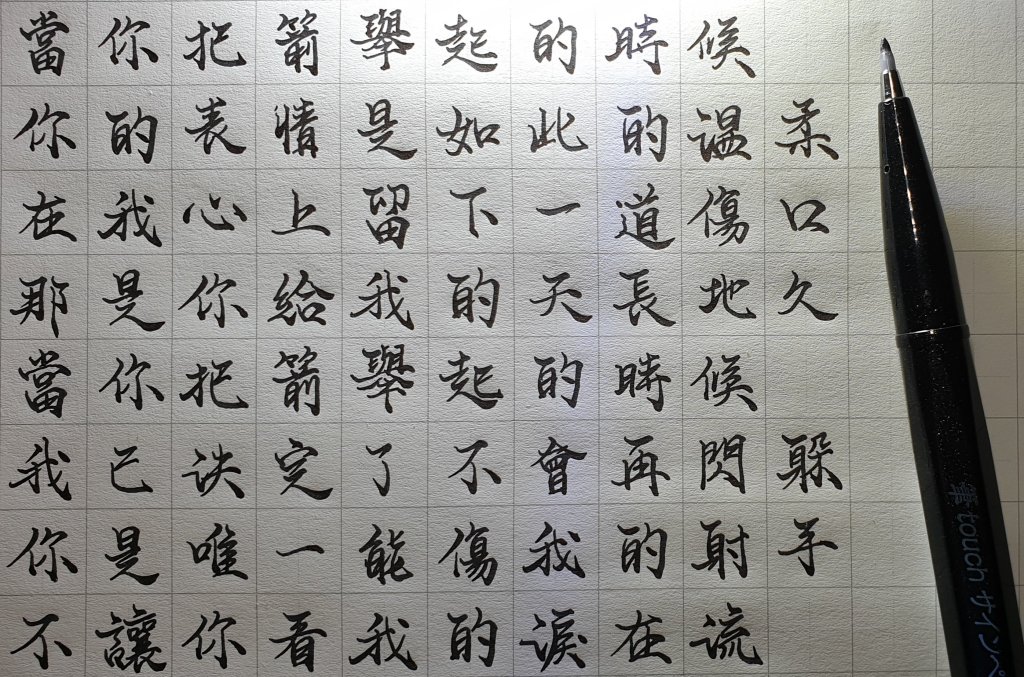 當你把箭舉起的時候
你的表情是如此的溫柔
在我心上留下一道傷口
那是你給我的天長地久
當你把箭舉起的時候
我已決定了不會再閃躲
你是唯一能傷我的射手
不讓你看我的淚在流
筆touchサインペ